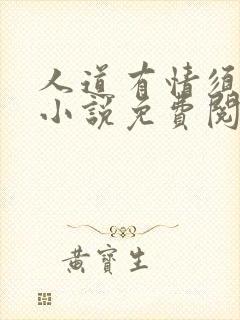 人道有情须
小說免費閱
黃寶生